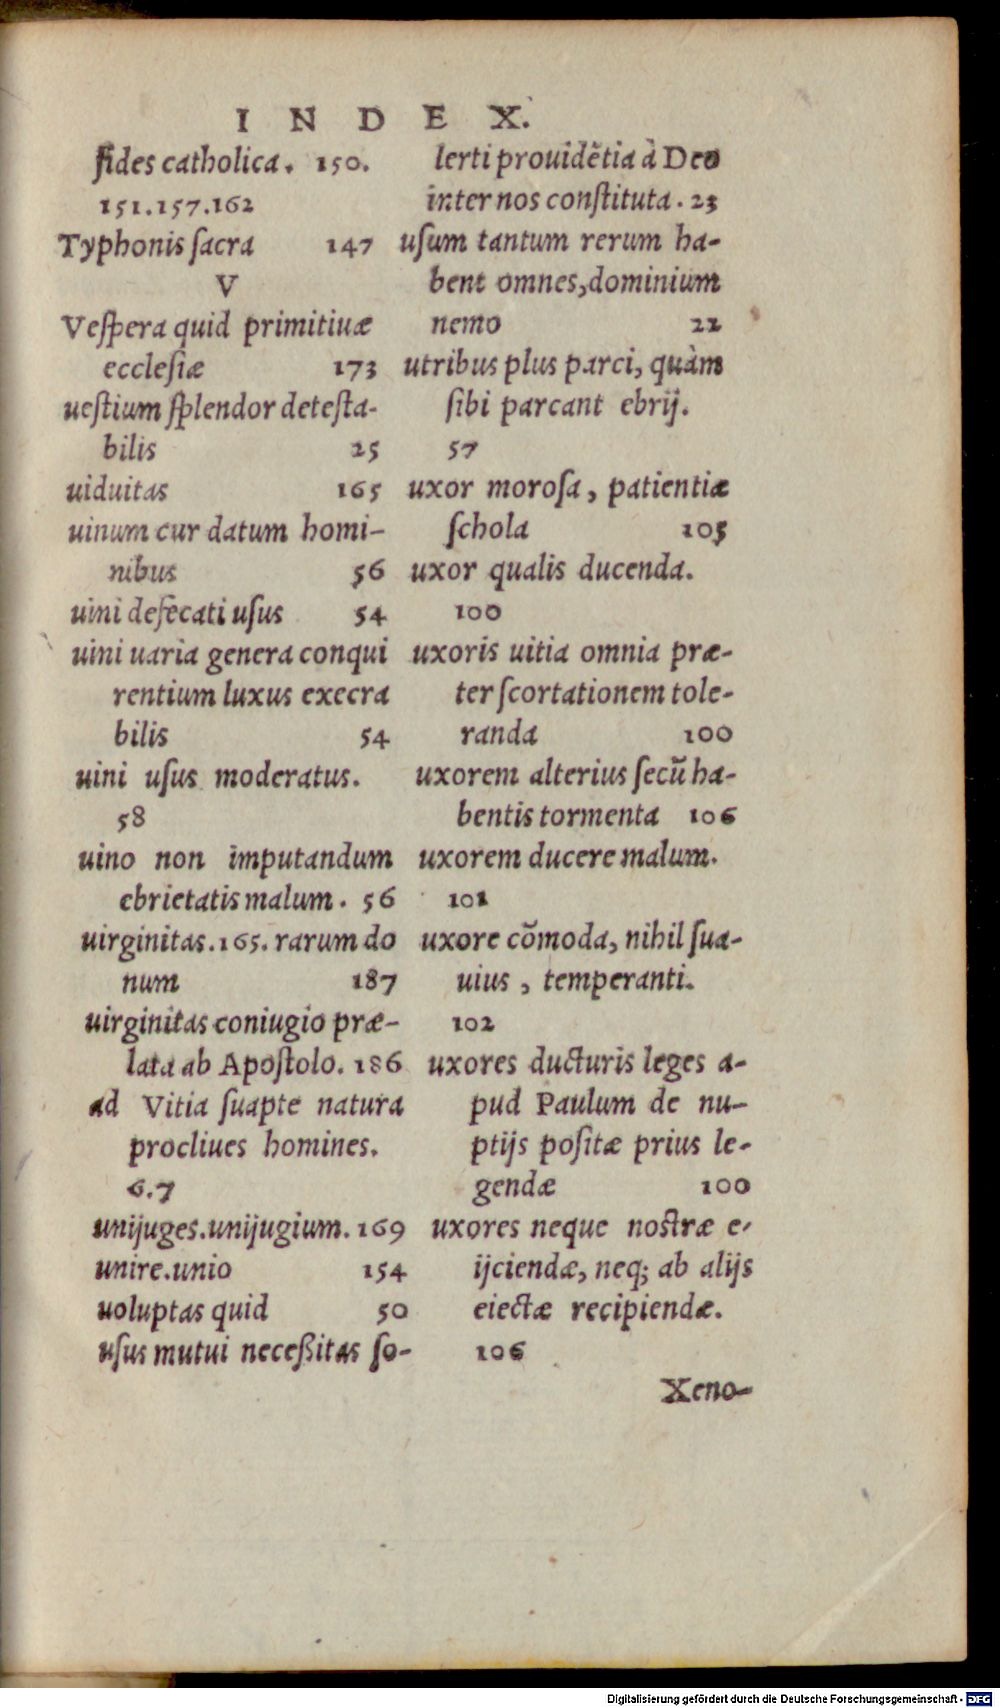 INDEX.
fides catholica. 150.
151.157.162
Typhonis ſacra 147
V
Veſpera quid primitiuæ
eccleſiæ 173
ueſtium ſplendor deteſta-
bilis 25
uiduitas 165
uinum cur datum homi-
nibus 56
uini defecati uſus 54
uini uaria genera conqui
rentium luxus execra
bilis 54
uini uſus moderatus.
58
uino non imputandum
ebrietatis malum. 56
uirginitas.165. rarum do
num 187
uirginitas coniugio præ-
lata ab Apoſtolo. 186
ad Vitia ſuapte natura
procliues homines.
6.7
unijuges.unijugium. 169
unire.unio 154
uoluptas quid 50
uſus mutui neceßitas ſo-
lerti prouidẽtia à Deo
inter nos conſtituta. 23
uſum tantum rerum ha-
bent omnes, dominium
nemo 22
utribus plus parci, quàm
ſibi parcant ebrij.
57
uxor moroſa, patientiæ
ſchola 105
uxor qualis ducenda.
100
uxoris uitia omnia præ-
ter ſcortationem tole-
randa 100
uxorem alterius ſecũ ha-
bentis tormenta 106
uxorem ducere malum.
101
uxore cõmoda, nihil ſua-
uius, temperanti.
102
uxores ducturis leges a-
pud Paulum de nu-
ptijs poſitæ prius le-
gendæ 100
uxores neque noſtræ e-
ijciendæ, neq; ab alijs
eiectæ recipiendæ.
106
Xeno-
Digitalisierung gefördert durch die Deutsche Forschungsgemeinschaft - DFG